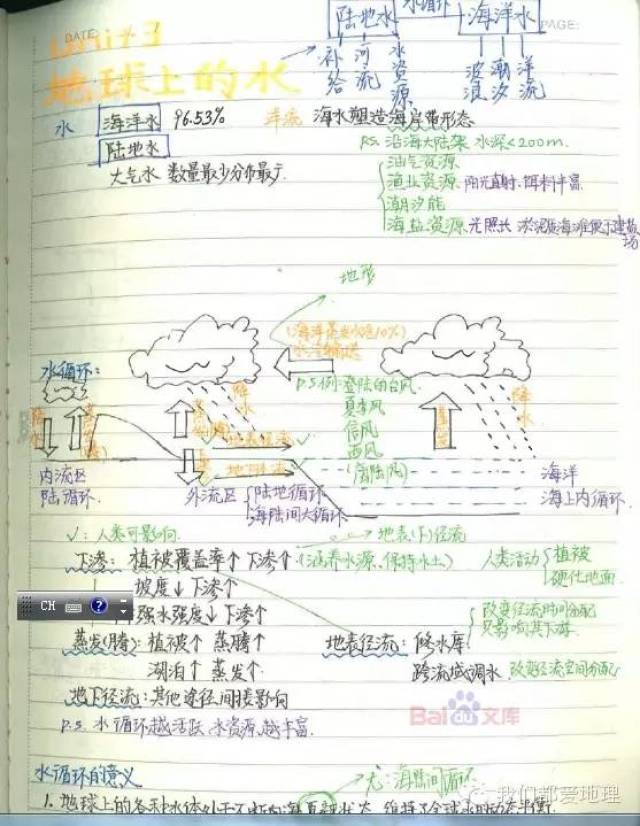 陆地水 水循环 海洋水
DATE: PAGE:
Unit 3
补给 河流 水资源 波浪 潮汐 洋流
地球上的水
水 海洋水 96.53% 洋流 海水塑造海岸带形态
陆地水 P.S. 沿海大陆架 水深<200m.
大气水 数量最少分布最广.
油气资源
渔业资源 阳光直射、饵料丰富
潮汐能
海盐资源 光照长 淤泥质海滩便于建盐场
地形
(海洋蒸发 10%)
水汽输送
水循环:
降水
P.S例:登陆的台风
降水
夏季风
信风
西风
(海陆风)
降水
蒸发
地表径流
下渗
地下径流
蒸发
内流区
陆循环
外流区
陆地循环
海陆间大循环
海洋
海上内循环
✓:人类可影响
地表(下)径流
下渗: 植被覆盖率↑ 下渗↑(涵养水源、保持水土) 人类活动 植被
硬化地面
坡度↓ 下渗↑
CH
强水强度↓ 下渗↑
改变径流时间分配
只影响其下游.
蒸发(腾): 植被↑ 蒸腾↑ 地表径流: 修水库
湖泊↑ 蒸发↑ 跨流域调水 改变径流空间分配
地下径流:其他途径间接影响
P.S. 水循环越活跃 水资源越丰富.
Bai du 文库
水循环的意义
尤:海陆间循环
我们都爱地理
1. 地球上的各种水体处于不断的